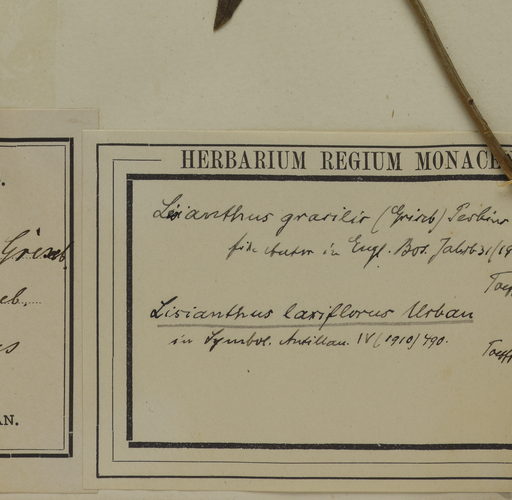 HERBARIUM REGIUM MONACE
Lisianthus gracilis (Griseb) Perkins
fide Autor in Engl. Bot. Jahrb 31 (19
Lisianthus laxiflorus Urban
in Symbol. Antillan. IV (1910) 490.
Griseb.
eb.
AN.